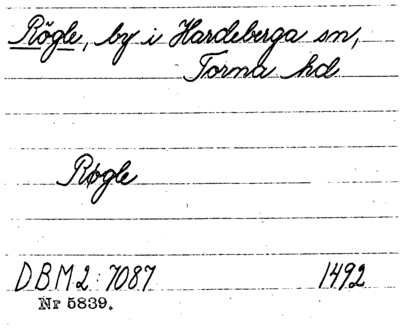 Rögle, by i Hardeberga sn,
Torna hd
Røgle
DBM2:7087 1492
Nr 5839.